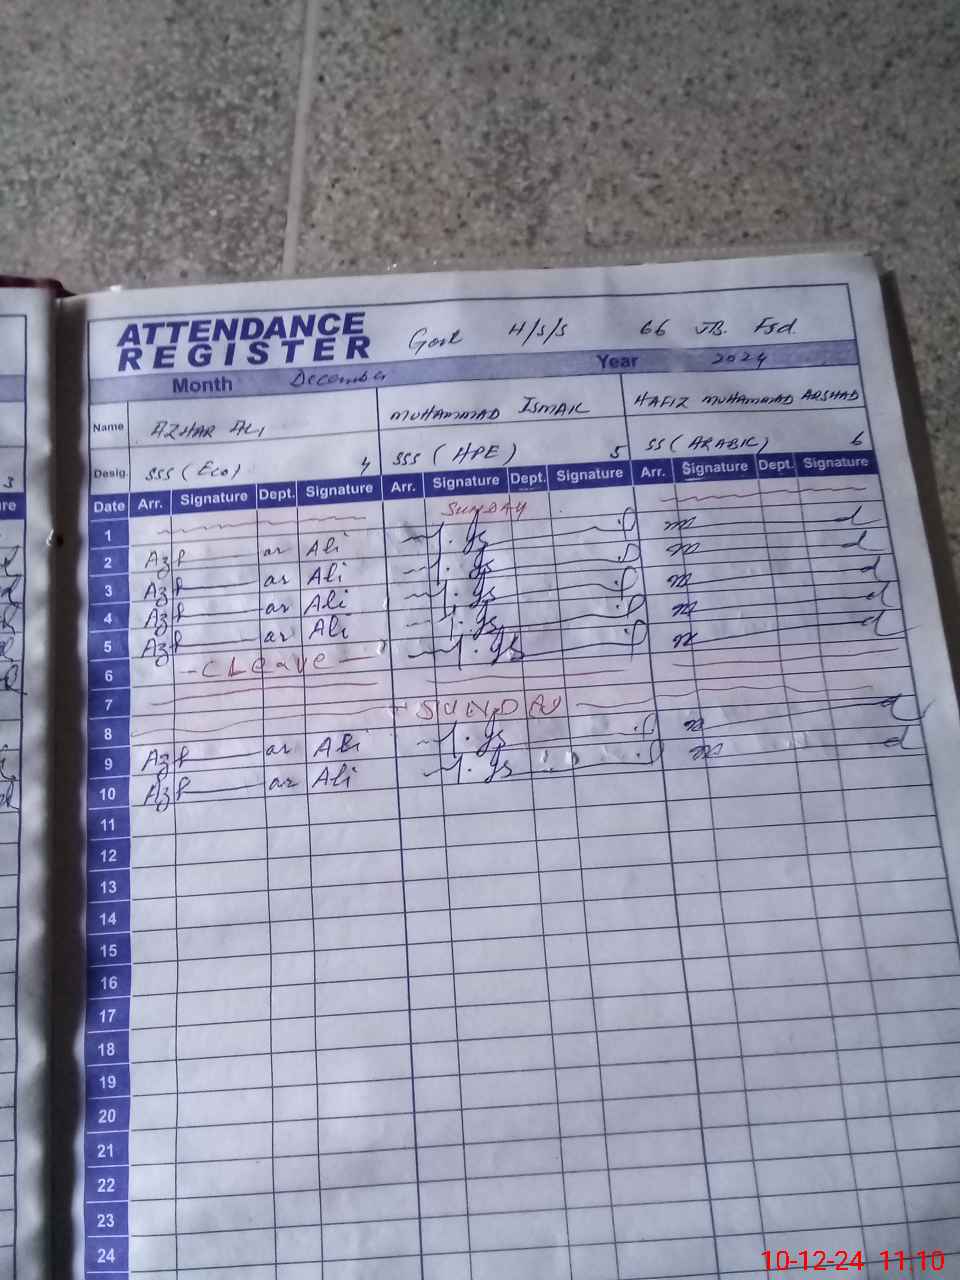 ATTENDANCE
REGISTER
Govt H/S/S 66 JB. Fsd.
Month December Year 2024
Name AZHAR ALI MUHAMMAD ISMAIL HAFIZ MUHAMMAD ARSHAD
Desig. SSS (Eco) 4 SSS (HPE) 5 SS (ARABIC) 6
3
Date Arr. Signature Dept. Signature Arr. Signature Dept. Signature Arr. Signature Dept. Signature
1 SUNDAY
2 Az ar Ali
3 Az ar Ali
4 Az ar Ali
5 Az ar Ali
6 - C Leave -
7
8 SUNDAY
9 Az ar Ali
10 Az ar Ali
11
12
13
14
15
16
17
18
19
20
21
22
23
24
10-12-24 11:10